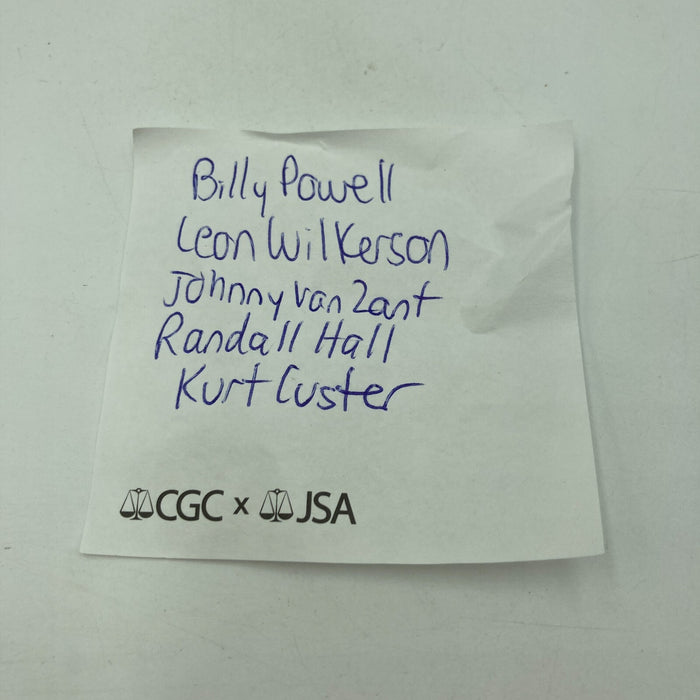 Billy Powell
Leon Wilkerson
Johnny Van Zant
Randall Hall
Kurt Custer
CGC x JSA